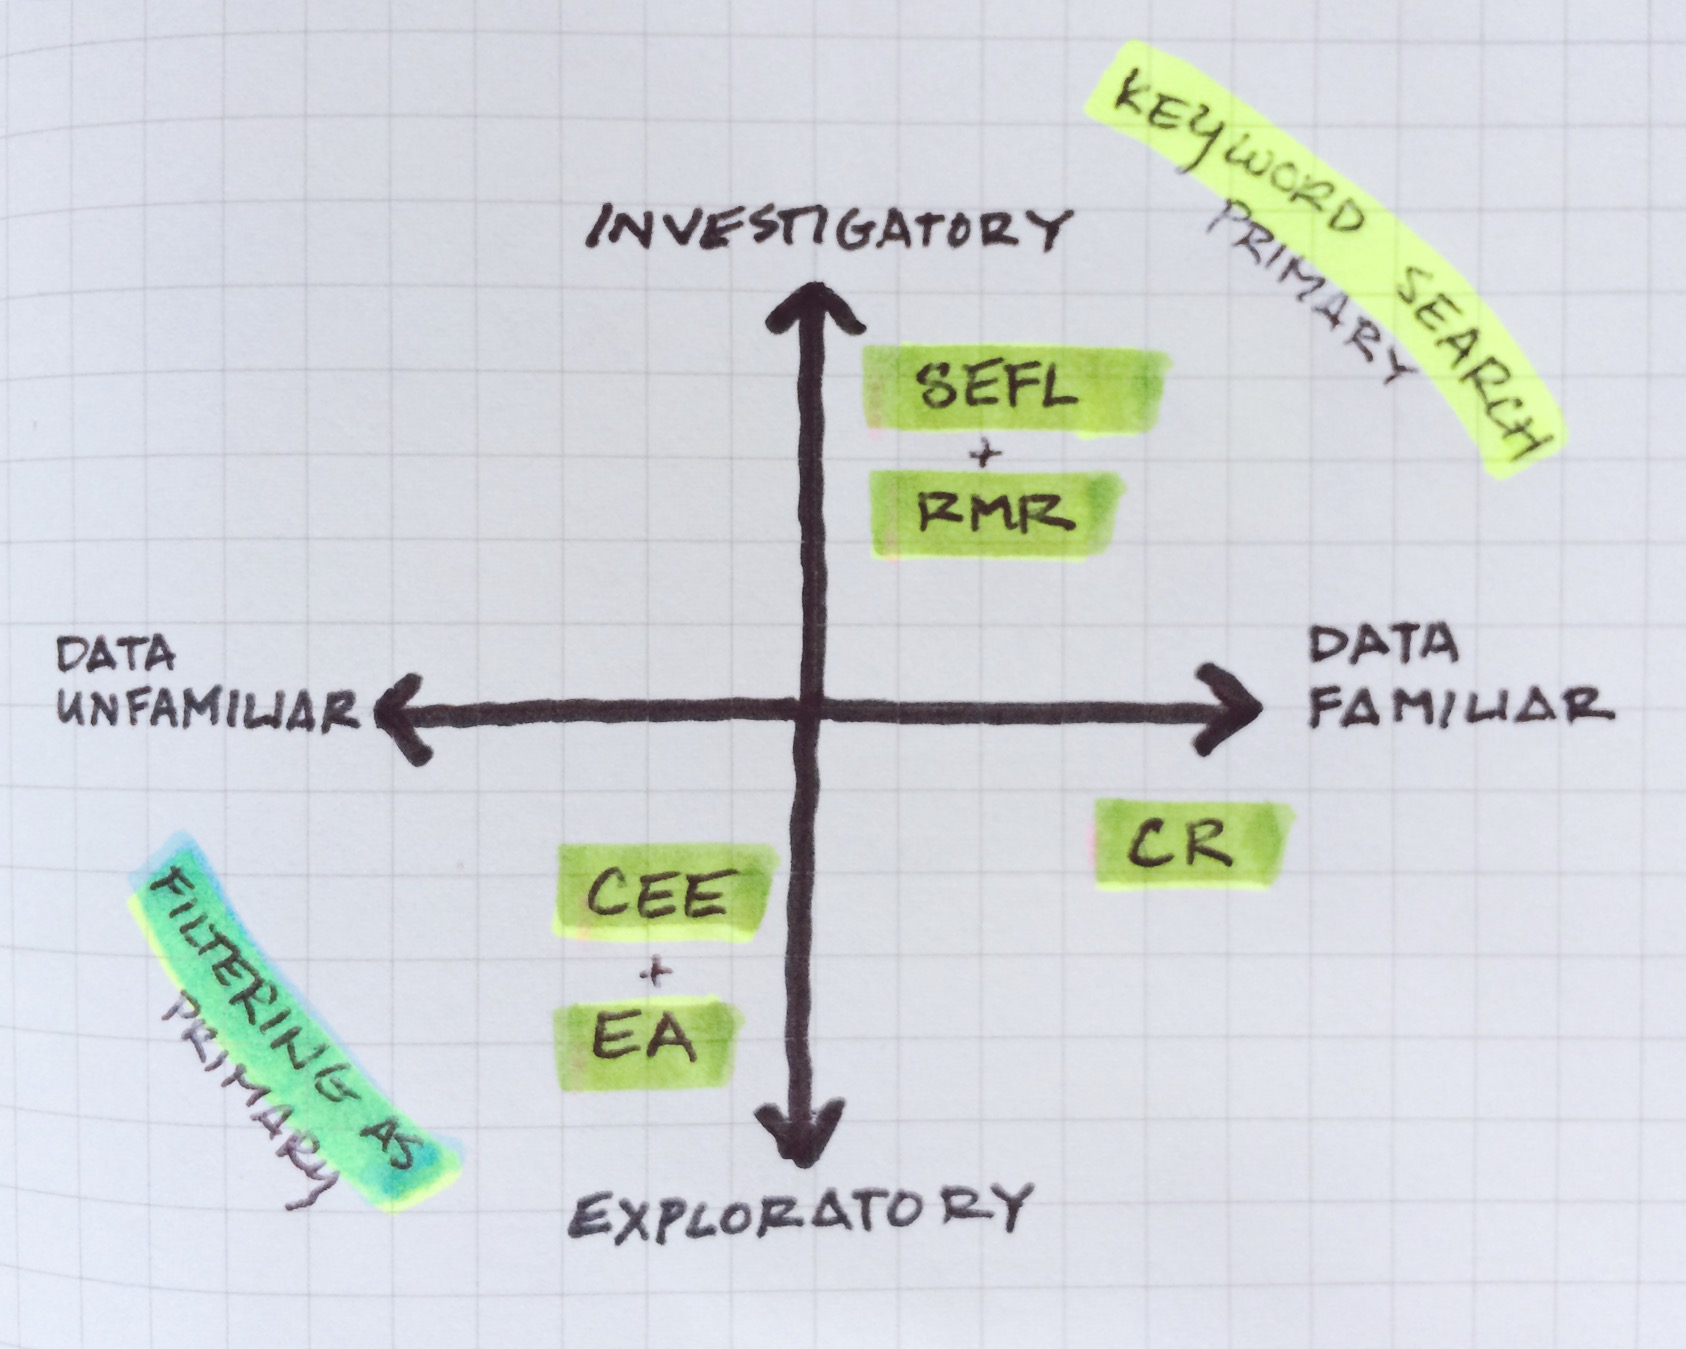 KEYWORD SEARCH
PRIMARY
INVESTIGATORY
SEFL
+
RMR
DATA
UNFAMILIAR
DATA
FAMILIAR
CR
CEE
+
EA
FILTERING AS
PRIMARY
EXPLORATORY